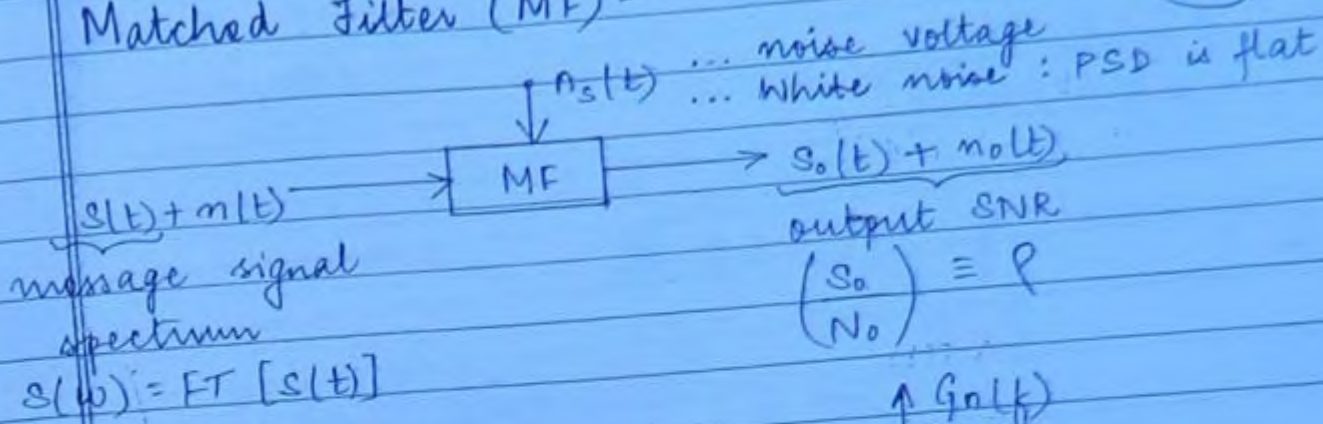 Matched Filter (MF)
ns(t) ... noise voltage
... White noise : PSD is flat
S(t) + n(t)
MF
So(t) + no(t)
message signal
spectrum
output SNR
(So/No) ≡ ρ
S(ω) = FT [S(t)]
↑ Gn(f)